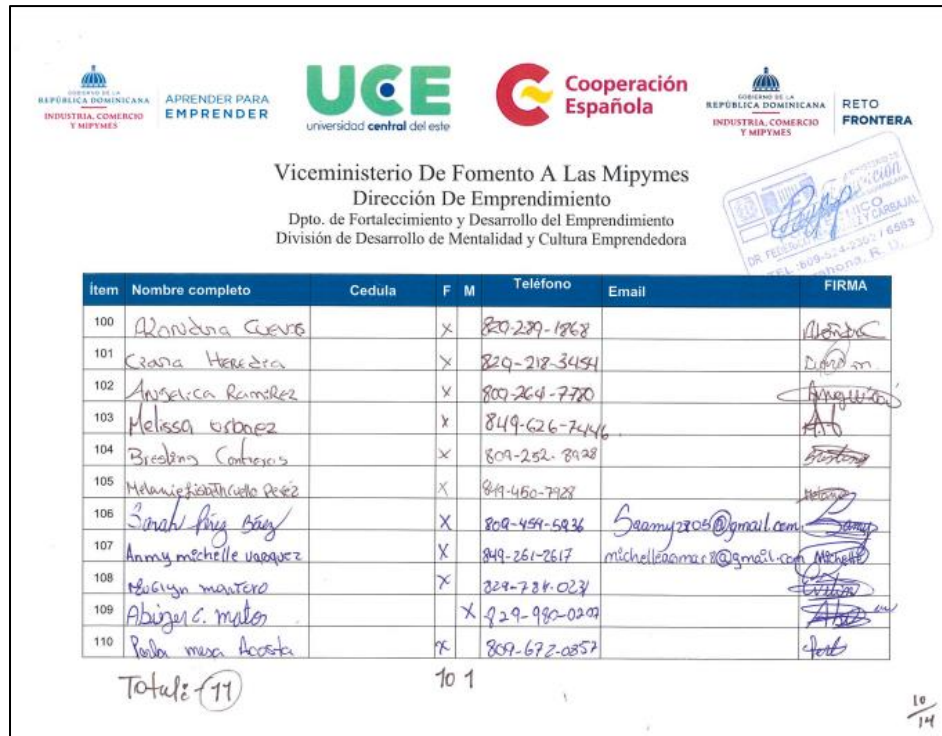 GOBIERNO DE LA
REPÚBLICA DOMINICANA
INDUSTRIA, COMERCIO
Y MIPYMES
APRENDER PARA
EMPRENDER
UCE
universidad central del este
Cooperación
Española
GOBIERNO DE LA
REPÚBLICA DOMINICANA
INDUSTRIA, COMERCIO
Y MIPYMES
RETO
FRONTERA
Viceministerio De Fomento A Las Mipymes
Dirección De Emprendimiento
Dpto. de Fortalecimiento y Desarrollo del Emprendimiento
División de Desarrollo de Mentalidad y Cultura Emprendedora
DR. FEDERICO Y CARBAJAL
TEL.:809-524-2302 / 6583
Barahona, R. D.
Ítem Nombre completo Cedula F M Teléfono Email FIRMA
100 Cuevas X 829-289-1868
101 Heredia X 829-218-3454
102 Angelica Ramirez X 809-264-7780
103 Melissa urbaez X 849-626-7446
104 Contreras X 809-252-8928
105 Melanie Perez X 849-450-7928
106 Sarah Pérez Báez X 809-454-5936 Saamy2805@gmail.com Samy
107 Anmy michelle vasquez X 849-261-2617 Michelle
108 montero X 829-784-0231
109 C. matos X 829-980-0202
110 Perla mesa Acosta X 809-672-0857
Total: 11 10 1
10
14